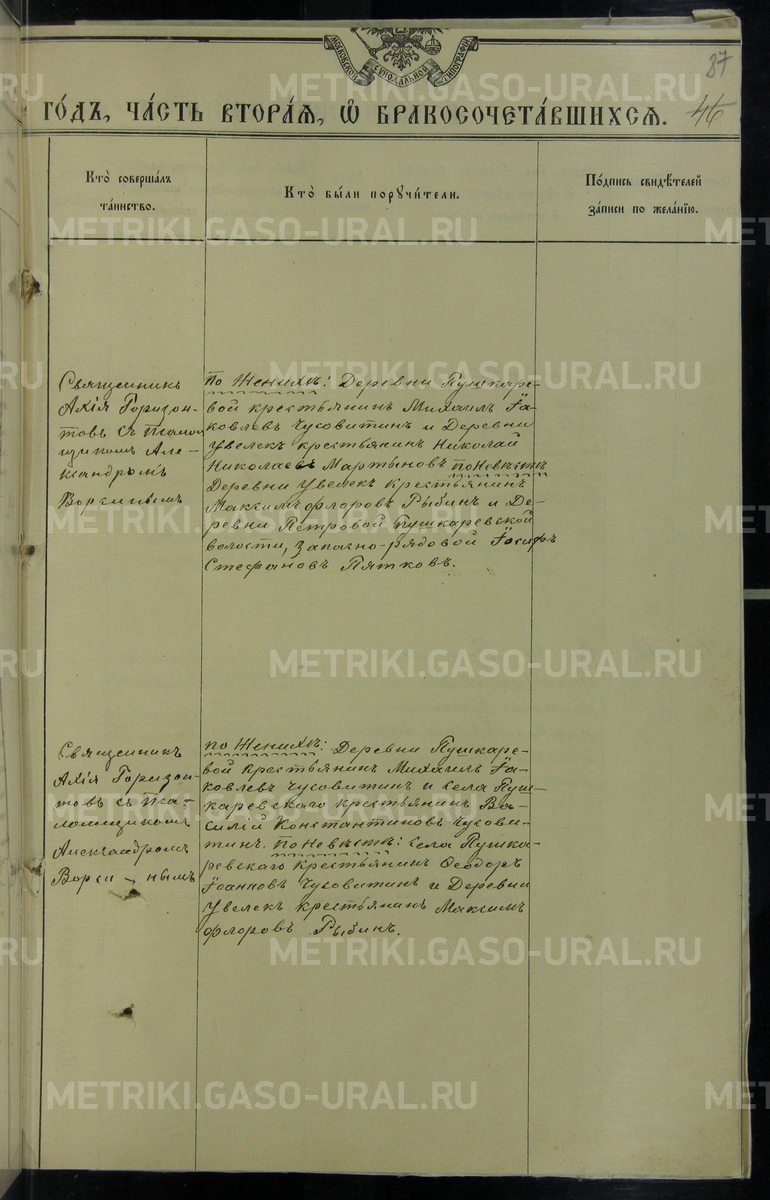 МОСКОВСКОЙ СѴНОДАЛЬНОЙ ТИПОГРАФІИ
87
ГО́ДЪ, ЧА́СТЬ ВТОРА́Я, Ѽ БРАКОСОЧЕТА́ВШИХСЯ.
46
Кто̀ совершалъ
та́инство.
Кто̀ бы́ли порꙋчи́тели.
По́дпись свидѣ́телей
за́писи по жела́нїю.
Священникъ
Ахія Горизон-
товъ съ псалом
щикомъ Але-
ксандромъ
Воргинымъ
по Женихѣ: Деревни Пушкаре-
вой крестьянинъ Михаилъ Іа-
ковлевъ Чусовитинъ и Деревни
Увелекъ крестьянинъ Николай
Николаевъ Мартыновъ по Невѣстѣ
Деревни Увелекъ крестьянинъ
Максимъ Флоровъ Рыбинъ и Де-
ревни Петровой Пушкаревской
волости, запасно-рядовой Іосифъ
Стефановъ Пятковъ.
Священникъ
Ахія Горизон-
товъ съ Пса-
ломщикомъ
Александромъ
по Женихѣ: Деревни Пушкаре-
вой крестьянинъ Михаилъ Іа-
ковлевъ Чусовитинъ и села Пуш-
каревскаго крестьянинъ Ва-
силій Константиновъ Чусови-
тинъ. по Невѣстѣ: села Пушка-
ревскаго крестьянинъ Ѳеодоръ
Іоанновъ Чусовитинъ и Деревни
Увелекъ крестьянинъ Максимъ
Флоровъ Рыбинъ.
METRIKI.GASO-URAL.RU